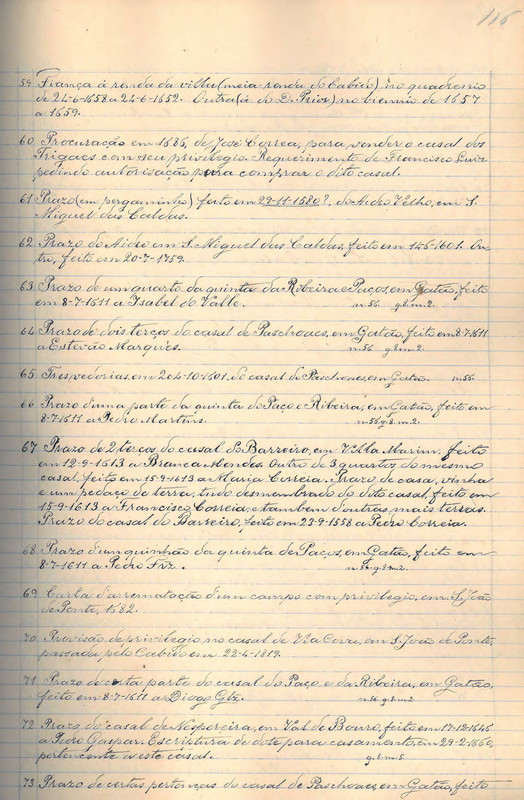 116
59 Fiança á renda da villa (meia renda do Cabido) no quadrennio
de 24-6-1658 a 24-6-1652. Outra (a do D. Prior) no biennio de 1657
a 1659.
60 Procuração em 1686, de José Correa, para vender o casal dos
Trigaes com seu privilegio. Requerimento de Francisco Luiz
pedindo autorisação para comprar o dito casal.
61 Prazo (em pergaminho) feito em 29-11-1580?, do Aido Velho, em S.
Miguel das Caldas.
62 Prazo do Aido em S. Miguel das Caldas, feito em 14-5-1601. Ou-
tro, feito em 20-7-1759.
63 Prazo de um quarto da quinta da Ribeira e Paços, em Gatão, feito
em 8-7-1611 a Isabel do Valle. n. 56 g. 8. m. 2.
64 Prazo de dois terços do casal de Paschoaes, em Gatão, feito em 8-7-1611
a Estevão Marques. n. 56 g. 8. m. 2.
65 Tres vedorias, em 2 e 4-10-1601, do casal de Paschoaes, em Gatão. n. 56
66 Prazo d'uma parte da quinta do Paço e Ribeira, em Gatão, feito em
8-7-1611 a Pedro Martins. n. 56 g. 8. m. 2.
67 Prazo de 2 terços do casal do Barreiro, em Villa Marim, feito
em 12-9-1613 a Branca Mendes. Outro de 3 quartos do mesmo
casal, feito em 15-9-1613 a Maria Correia. Prazo de casa, vinha
e um pedaço de terra, tudo desmembrado do dito casal, feito em
15-9-1613 a Francisco Correia, e tambem d'outras mais terras.
Prazo do casal do Barreiro, feito em 29-9-1558 a Pedro Correia.
68 Prazo d'um quinhão da quinta de Paços, em Gatão, feito em
8-7-1611 a Pedro Frz. n. 56 g. 8. m. 2.
69 Carta d'arrematação d'um campo com privilegio, em S. João
de Ponte, 1582.
70 Provisão de privilegio no casal de Via Cova, em S. João de Ponte,
passada pelo Cabido em 22-4-1819.
71 Prazo de certa parte do casal do Paço e da Ribeira, em Gatão,
feito em 8-7-1611 a Diogo Glz. n. 56, g. 8. m. 2
72 Prazo do casal de Nespereira, em Val de Bouro, feito em 17-12-1645
a Pedro Gaspar. Escriptura de dote para casamento, em 29-2-1660,
pertencente a este casal. g. 8. m. 5
73 Prazo de certas pertenças do casal de Paschoaes, em Gatão, feito